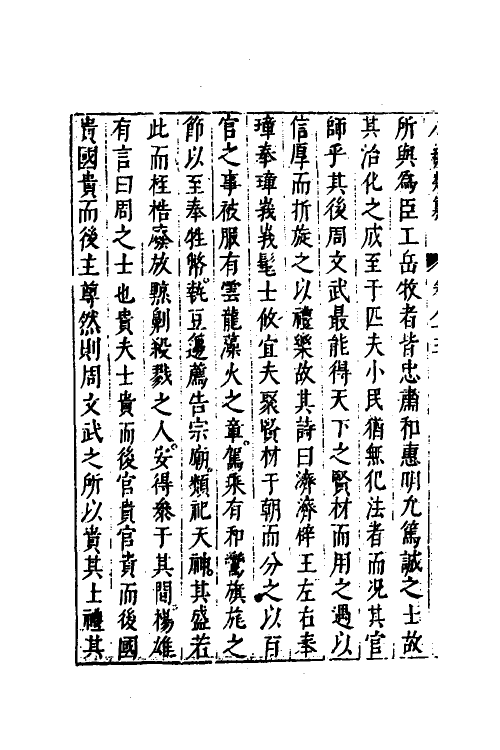 所與為臣工岳牧者皆忠肅和惠明允篤誠之士故
其治化之成至于匹夫小民猶無犯法者而況其官
師乎其後周文武最能得天下之賢材而用之遇以
信厚而折旋之以禮樂故其詩曰濟濟辟王左右奉
璋奉璋峩峩髦士攸宜夫聚賢材于朝而分之以百
官之事被服有雲龍藻火之章駕乘有和鸞旗旄之
節以至奉牲幣執豆籩薦告宗廟類祀天神其盛若
此而桎梏廢放黥劓殺戮之人安得參于其間楊雄
有言曰周之士也貴夫士貴而後官貴官貴而後國
貴國貴而後主尊然則周文武之所以貴其士禮其